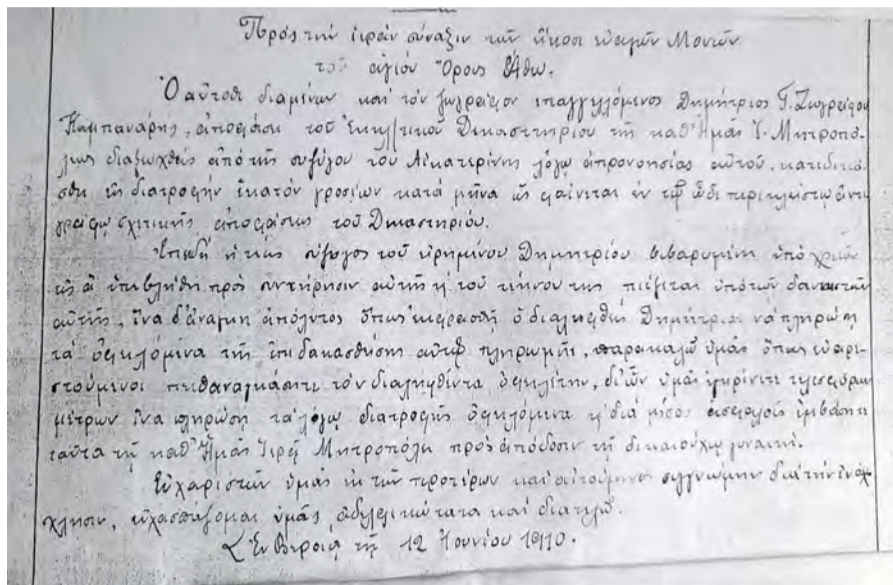 Πρὸς τὴν ἱερὰν σύναξιν τῶν εἴκοσι εὐαγῶν Μονῶν
τοῦ ἁγίου Ὄρους Ἄθω.
Ὁ αὐτόθι διαμένων καὶ τὸν ζωγράφον ἐπαγγελόμενος Δημήτριος Γ. Ζωγράφου
Καμπανάρης, ἀποφάσει τοῦ Ἐκκλ/τικοῦ Δικαστηρίου τῆς καθ' Ἡμᾶς Ἱ. Μητροπό-
λεως διαζευχθεὶς ἀπὸ τῆς συζύγου του Αἰκατερίνης λόγῳ ἀπρονοησίας αὐτοῦ, κατεδικά-
σθη εἰς διατροφὴν ἑκατὸν γροσίων κατὰ μῆνα ὡς φαίνεται ἐν τῷ ὧδε περικλείστῳ ἀντι
γράφῳ σχετικῆς ἀποφάσεως τοῦ Δικαστηρίου.
Ἐπειδὴ ἡ τέως σύζυγος τοῦ εἰρημένου Δημητρίου βεβαρυμένη ὑπὸ χρεῶν
εἰς ἃ ὑπεβλήθη πρὸς συντήρησιν αὐτῆς κ τοῦ τέκνου της πιέζεται ὑπὸ τῶν δανειστῶν
αὐτῆς, εἶνε δ' ἀνάγκη ἀπόλυτος ὅπως ὁ διαληφθεὶς Δημήτριος νὰ πληρώσῃ
τὰ ὀφειλόμενα τῆς ἐπιδικασθείσης αὐτῷ πληρωμῆς, παρακαλῶ ὑμᾶς ὅπως εὐαρε-
στούμενοι πειθαναγκάσητε τὸν διαληφθέντα ὀφειλέτην, δι' ὧν ὑμεῖς ἐγκρίνετε τελεσφόρων
μέτρων ἵνα πληρώσῃ τὰ λόγῳ διατροφῆς ὀφειλόμενα κ διὰ μέσου ἀσφαλοῦς ἐμβάσητε
ταῦτα τῇ καθ' Ἡμᾶς Ἱερᾷ Μητροπόλει πρὸς ἀπόδοσιν τῇ δικαιούχῳ γυναικί.
Εὐχαριστῶν ὑμᾶς ἐκ τῶν προτέρων καὶ αἰτούμενος συγγνώμην διὰ τὴν ἐνό-
χλησιν, κατασπάζομαι ὑμᾶς ἀδελφικώτατα καὶ διατελῶ.
Ἐν Βεροίᾳ τῇ 12 Ἰουνίου 1910.